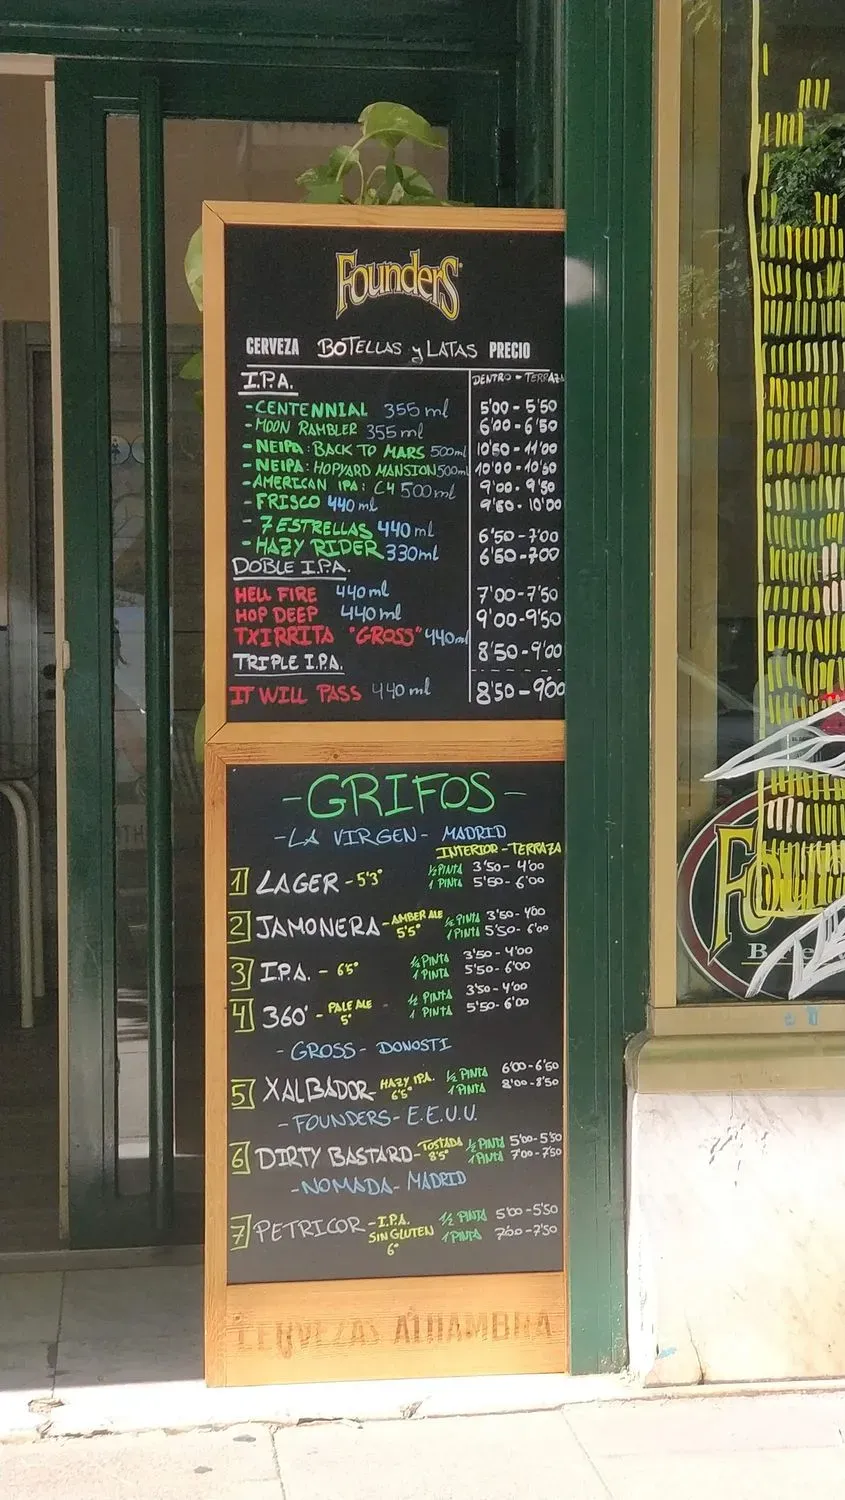 FOUNDERS
CERVEZA BOTELLAS y LATAS PRECIO
I.P.A. DENTRO - TERRAZA
- CENTENNIAL 355 ml 5'00 - 5'50
- MOON RAMBLER 355 ml 6'00 - 6'50
- NEIPA: BACK TO MARS 500ml 10'50 - 11'00
- NEIPA: HOPYARD MANSION 500ml 10'00 - 10'50
- AMERICAN IPA: C4 500ml 9'00 - 9'50
- FRISCO 440 ml 9'50 - 10'00
- 7 ESTRELLAS 440 ml 6'50 - 7'00
- HAZY RIDER 330ml 6'50 - 7'00
DOBLE I.P.A.
HELL FIRE 440 ml 7'00 - 7'50
HOP DEEP 440 ml 9'00 - 9'50
TXIRRITA "GROSS" 440ml 8'50 - 9'00
TRIPLE I.P.A.
IT WILL PASS 440 ml 8'50 - 9'00
- GRIFOS -
- LA VIRGEN - MADRID
INTERIOR - TERRAZA
1 LAGER - 5'3° ½ PINTA 3'50 - 4'00
1 PINTA 5'50 - 6'00
2 JAMONERA - AMBER ALE 5'5° ½ PINTA 3'50 - 4'00
1 PINTA 5'50 - 6'00
3 I.P.A. - 6'5° ½ PINTA 3'50 - 4'00
1 PINTA 5'50 - 6'00
4 360' - PALE ALE 5° ½ PINTA 3'50 - 4'00
1 PINTA 5'50 - 6'00
- GROSS - DONOSTI
5 XALBADOR - HAZY IPA. 6'5° ½ PINTA 6'00 - 6'50
1 PINTA 8'00 - 8'50
- FOUNDERS - E.E.U.U.
6 DIRTY BASTARD - TOSTADA 8'5° ½ PINTA 5'00 - 5'50
1 PINTA 7'00 - 7'50
- NOMADA - MADRID
7 PETRICOR - I.P.A. SIN GLUTEN 6° ½ PINTA 5'00 - 5'50
1 PINTA 7'00 - 7'50
CERVEZAS ALHAMBRA